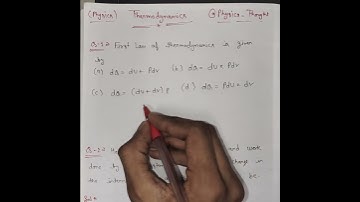 (Physics) Thermodynamics @Physics_Thought
Q.1 → First Law of thermodynamics is given
by
(a) dQ = dU + PdV (b) dQ = dU × PdV
(c) dQ = (dU + dV) P (d) dQ = PdU + dV
and work
done by change in
the inter be